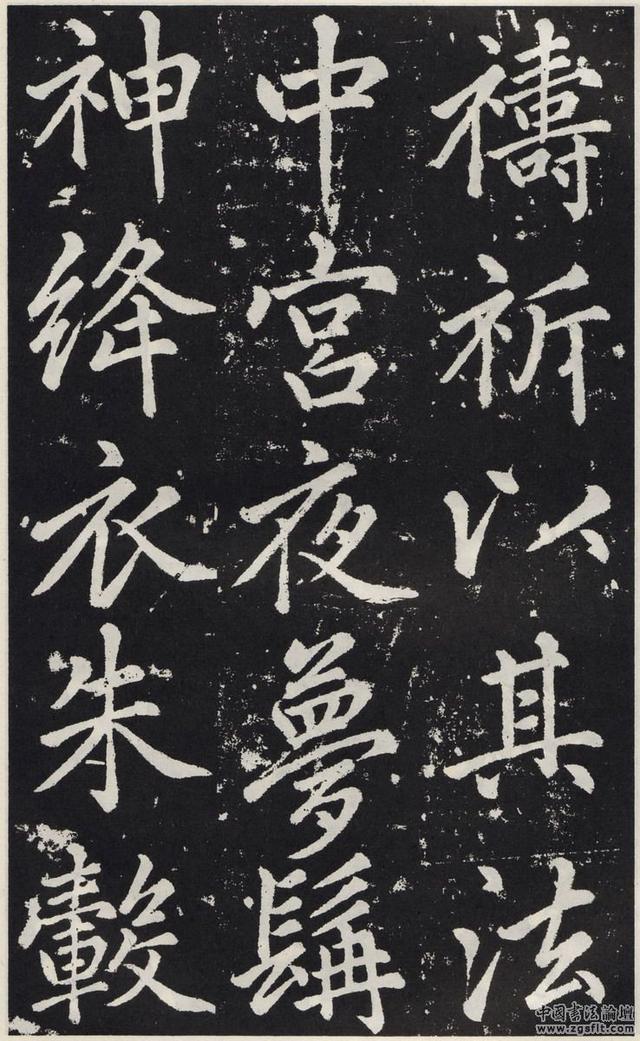 禱祈以其法
中宮夜夢髯
神絳衣朱轂
中国書法論壇
www.zgsflt.com